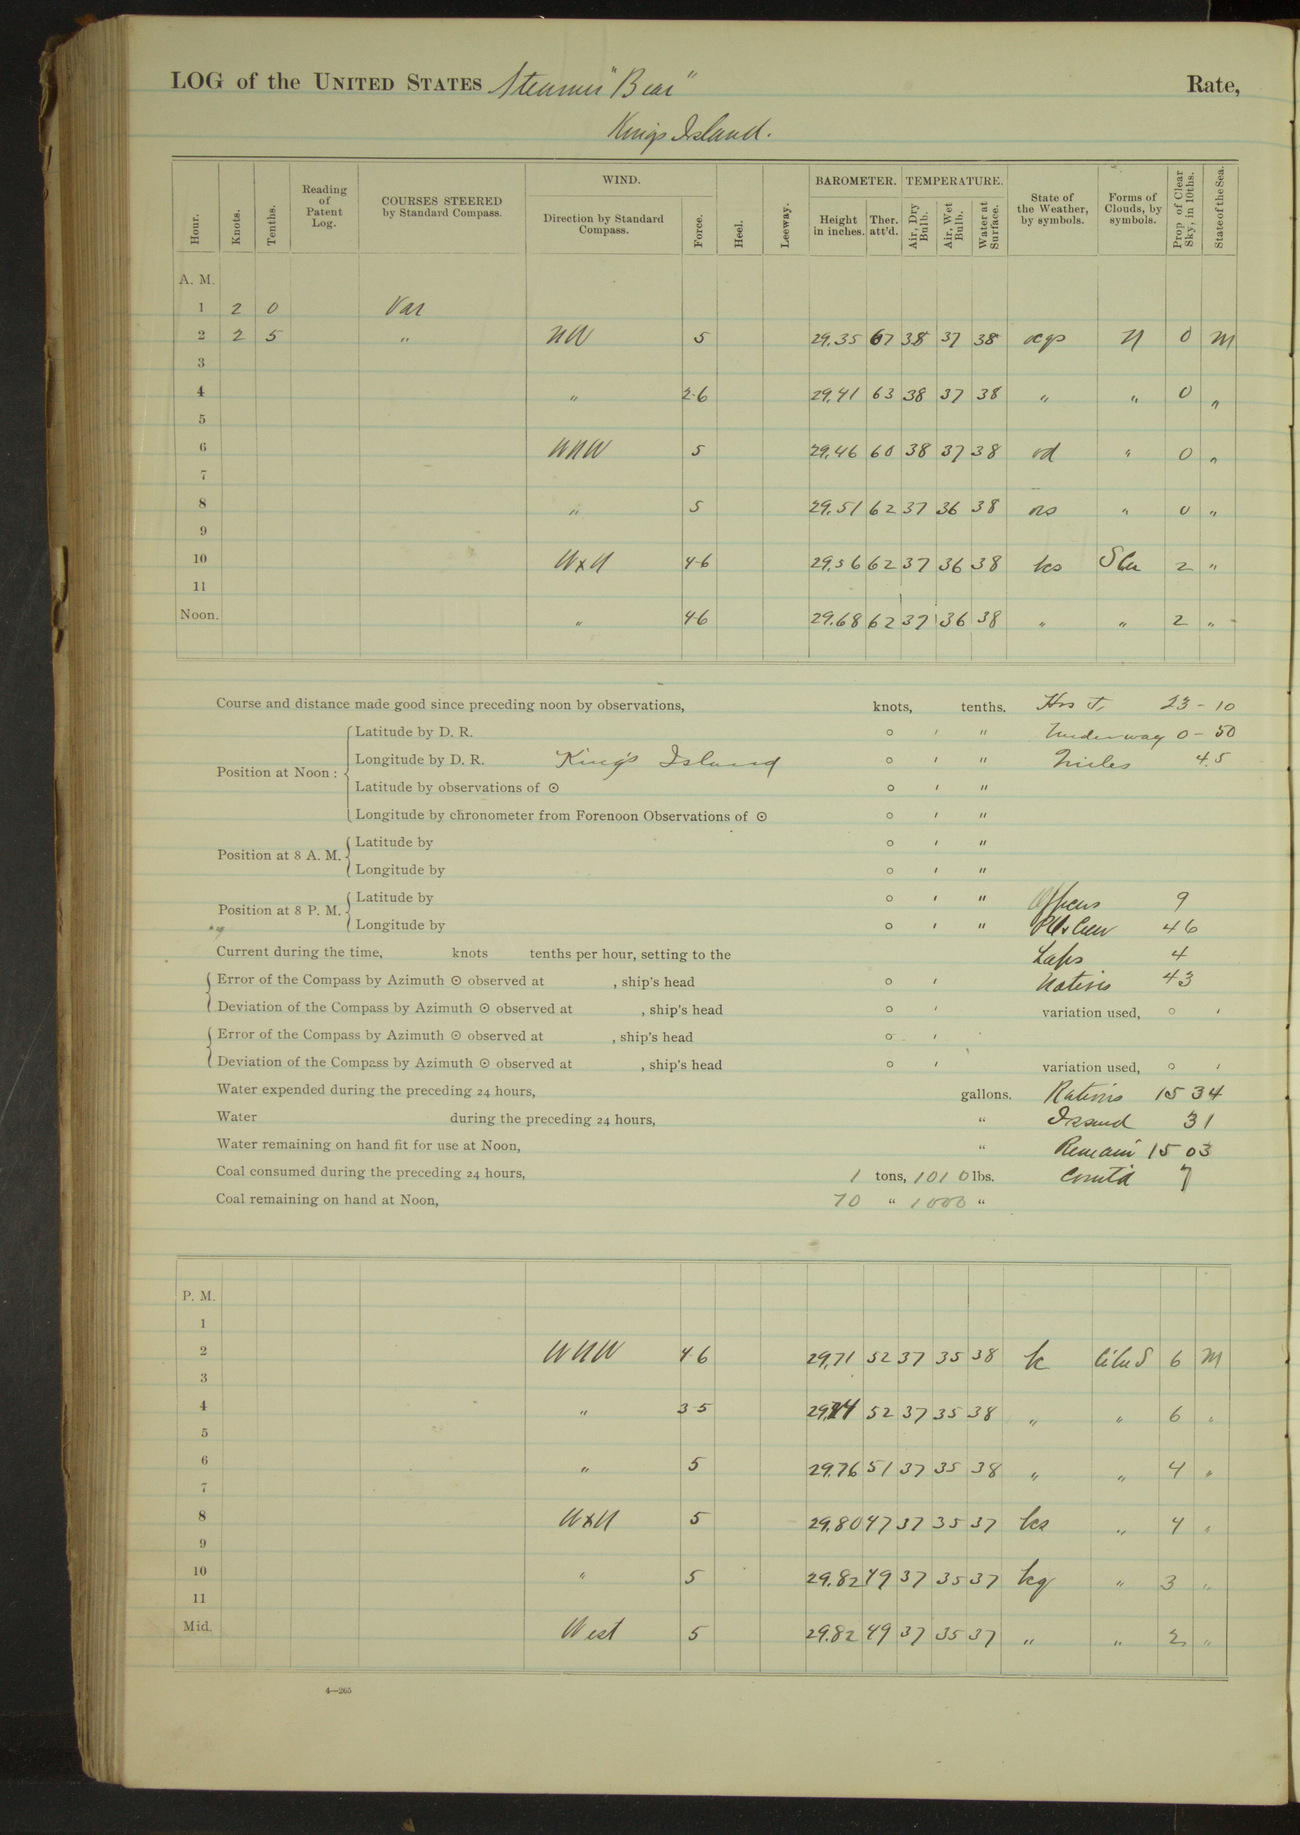 LOG of the UNITED STATES Steamer "Bear" Rate,
Kings Island.
Hour. Knots. Tenths. Reading of Patent Log. COURSES STEERED by Standard Compass. WIND. Direction by Standard Compass. Force. Heel. Leeway. BAROMETER. Height in inches. Ther. att'd. TEMPERATURE. Air, Dry Bulb. Air, Wet Bulb. Water at Surface. State of the Weather, by symbols. Forms of Clouds, by symbols. Prop. of Clear Sky, in 10ths. State of the Sea.
A. M.
1 2 0 Var
2 2 5 " NW 5 29.35 67 38 37 38 N 0 M
3
4 " 2-6 29.41 63 38 37 38 " " 0 "
5
6 WNW 5 29.46 60 38 37 38 od " 0 "
7
8 " 5 29.51 62 37 36 38 os " 0 "
9
10 WxN 4-6 29.56 62 37 36 38 bcs SCu 2 "
11
Noon. " 4-6 29.68 62 37 36 38 " " 2 "
Course and distance made good since preceding noon by observations, knots, tenths. Hrs 23-10
Position at Noon: Latitude by D. R. ° ' " Underway 0-50
Longitude by D. R. King's Island ° ' " Miles 4.5
Latitude by observations of ☉ ° ' "
Longitude by chronometer from Forenoon Observations of ☉ ° ' "
Position at 8 A. M. Latitude by ° ' "
Longitude by ° ' "
Position at 8 P. M. Latitude by ° ' " Officers 9
Longitude by ° ' " Crew 46
Current during the time, knots tenths per hour, setting to the Laps 4
Error of the Compass by Azimuth ☉ observed at , ship's head ° ' Natives 43
Deviation of the Compass by Azimuth ☉ observed at , ship's head ° ' variation used, ° '
Error of the Compass by Azimuth ☉ observed at , ship's head ° '
Deviation of the Compass by Azimuth ☉ observed at , ship's head ° ' variation used, ° '
Water expended during the preceding 24 hours, gallons. Rations 1534
Water during the preceding 24 hours, " Issued 31
Water remaining on hand fit for use at Noon, " Remain 1503
Coal consumed during the preceding 24 hours, 1 tons, 1010 lbs. Comt'd 7
Coal remaining on hand at Noon, 70 " 1000 "
P. M.
1
2 WNW 4-6 29.71 52 37 35 38 bc CiCuS 6 M
3
4 " 3-5 29.74 52 37 35 38 " " 6 "
5
6 " 5 29.76 51 37 35 38 " " 4 "
7
8 WxN 5 29.80 47 37 35 37 bcs " 4 "
9
10 " 5 29.82 49 37 35 37 bcq " 3 "
11
Mid. West 5 29.82 49 37 35 37 " " 2 "
4—265